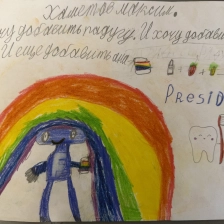 Хаметов максим.
чу добавить радугу. И хочу добави
И еще добавить
PresiD